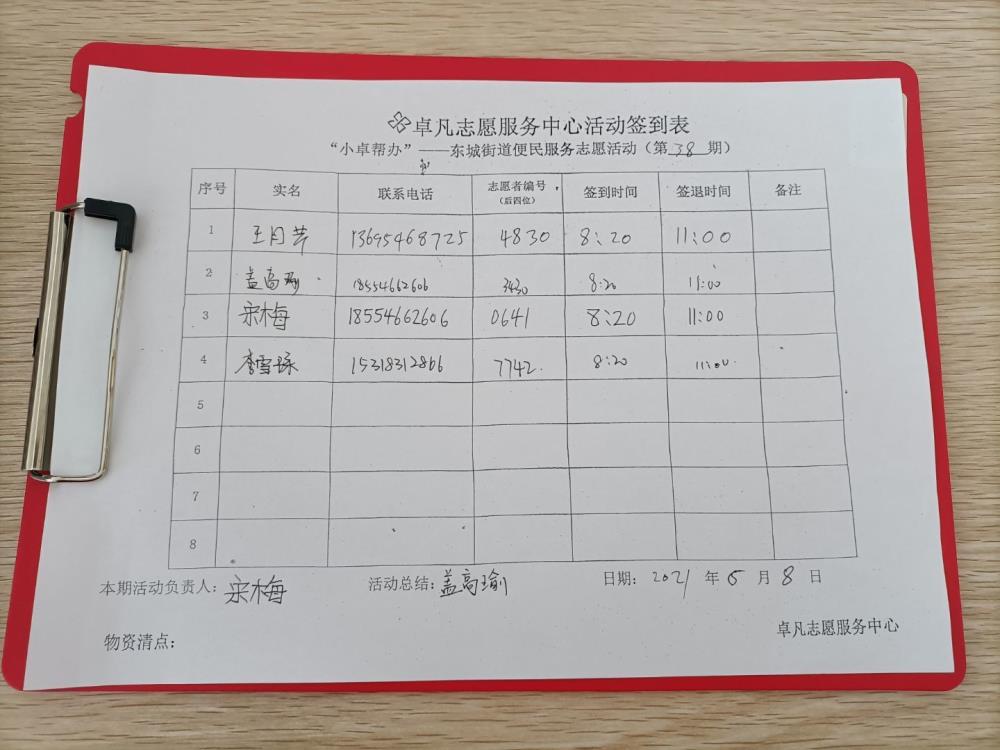 卓凡志愿服务中心活动签到表
“小卓帮办”——东城街道便民服务志愿活动（第38期）
序号 实名 联系电话 志愿者编号（后四位） 签到时间 签退时间 备注
1 王月芹 13695468725 4830 8:20 11:00
2 盖高瑜 18554662606 3430 8:20 11:00
3 宋梅 18554662606 0641 8:20 11:00
4 李雪 15318312866 7742 8:20 11:00
5
6
7
8
本期活动负责人：宋梅 活动总结：盖高瑜 日期：2021年5月8日
物资清点： 卓凡志愿服务中心